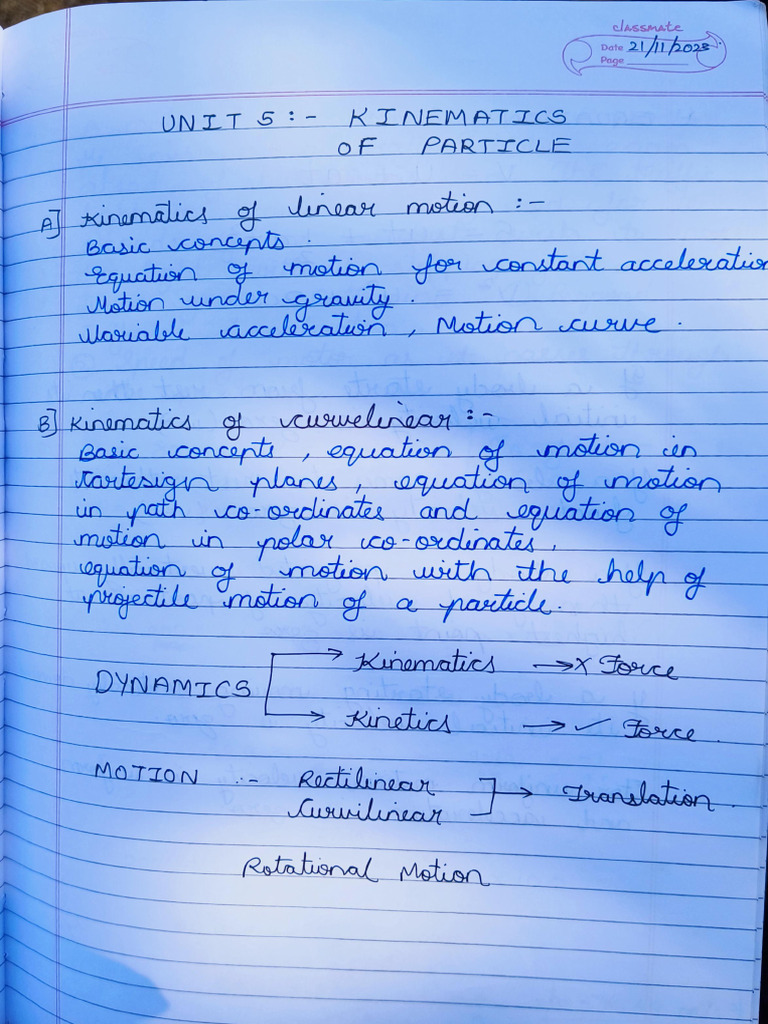 classmate
Date 21/11/2023
Page
UNIT 5 :- KINEMATICS
OF PARTICLE
A] Kinematics of linear motion :-
Basic concepts.
Equation of motion for constant acceleration
Motion under gravity.
Variable acceleration, Motion curve.
B] Kinematics of curvelinear :-
Basic concepts, equation of motion in
Cartesign planes, equation of motion
in path co-ordinates and equation of
motion in polar co-ordinates,
equation of motion with the help of
projectile motion of a particle.
Kinematics → x Force
DYNAMICS
Kinetics → ✓ Force.
MOTION :- Rectilinear
Curvilinear → Translation.
Rotational Motion